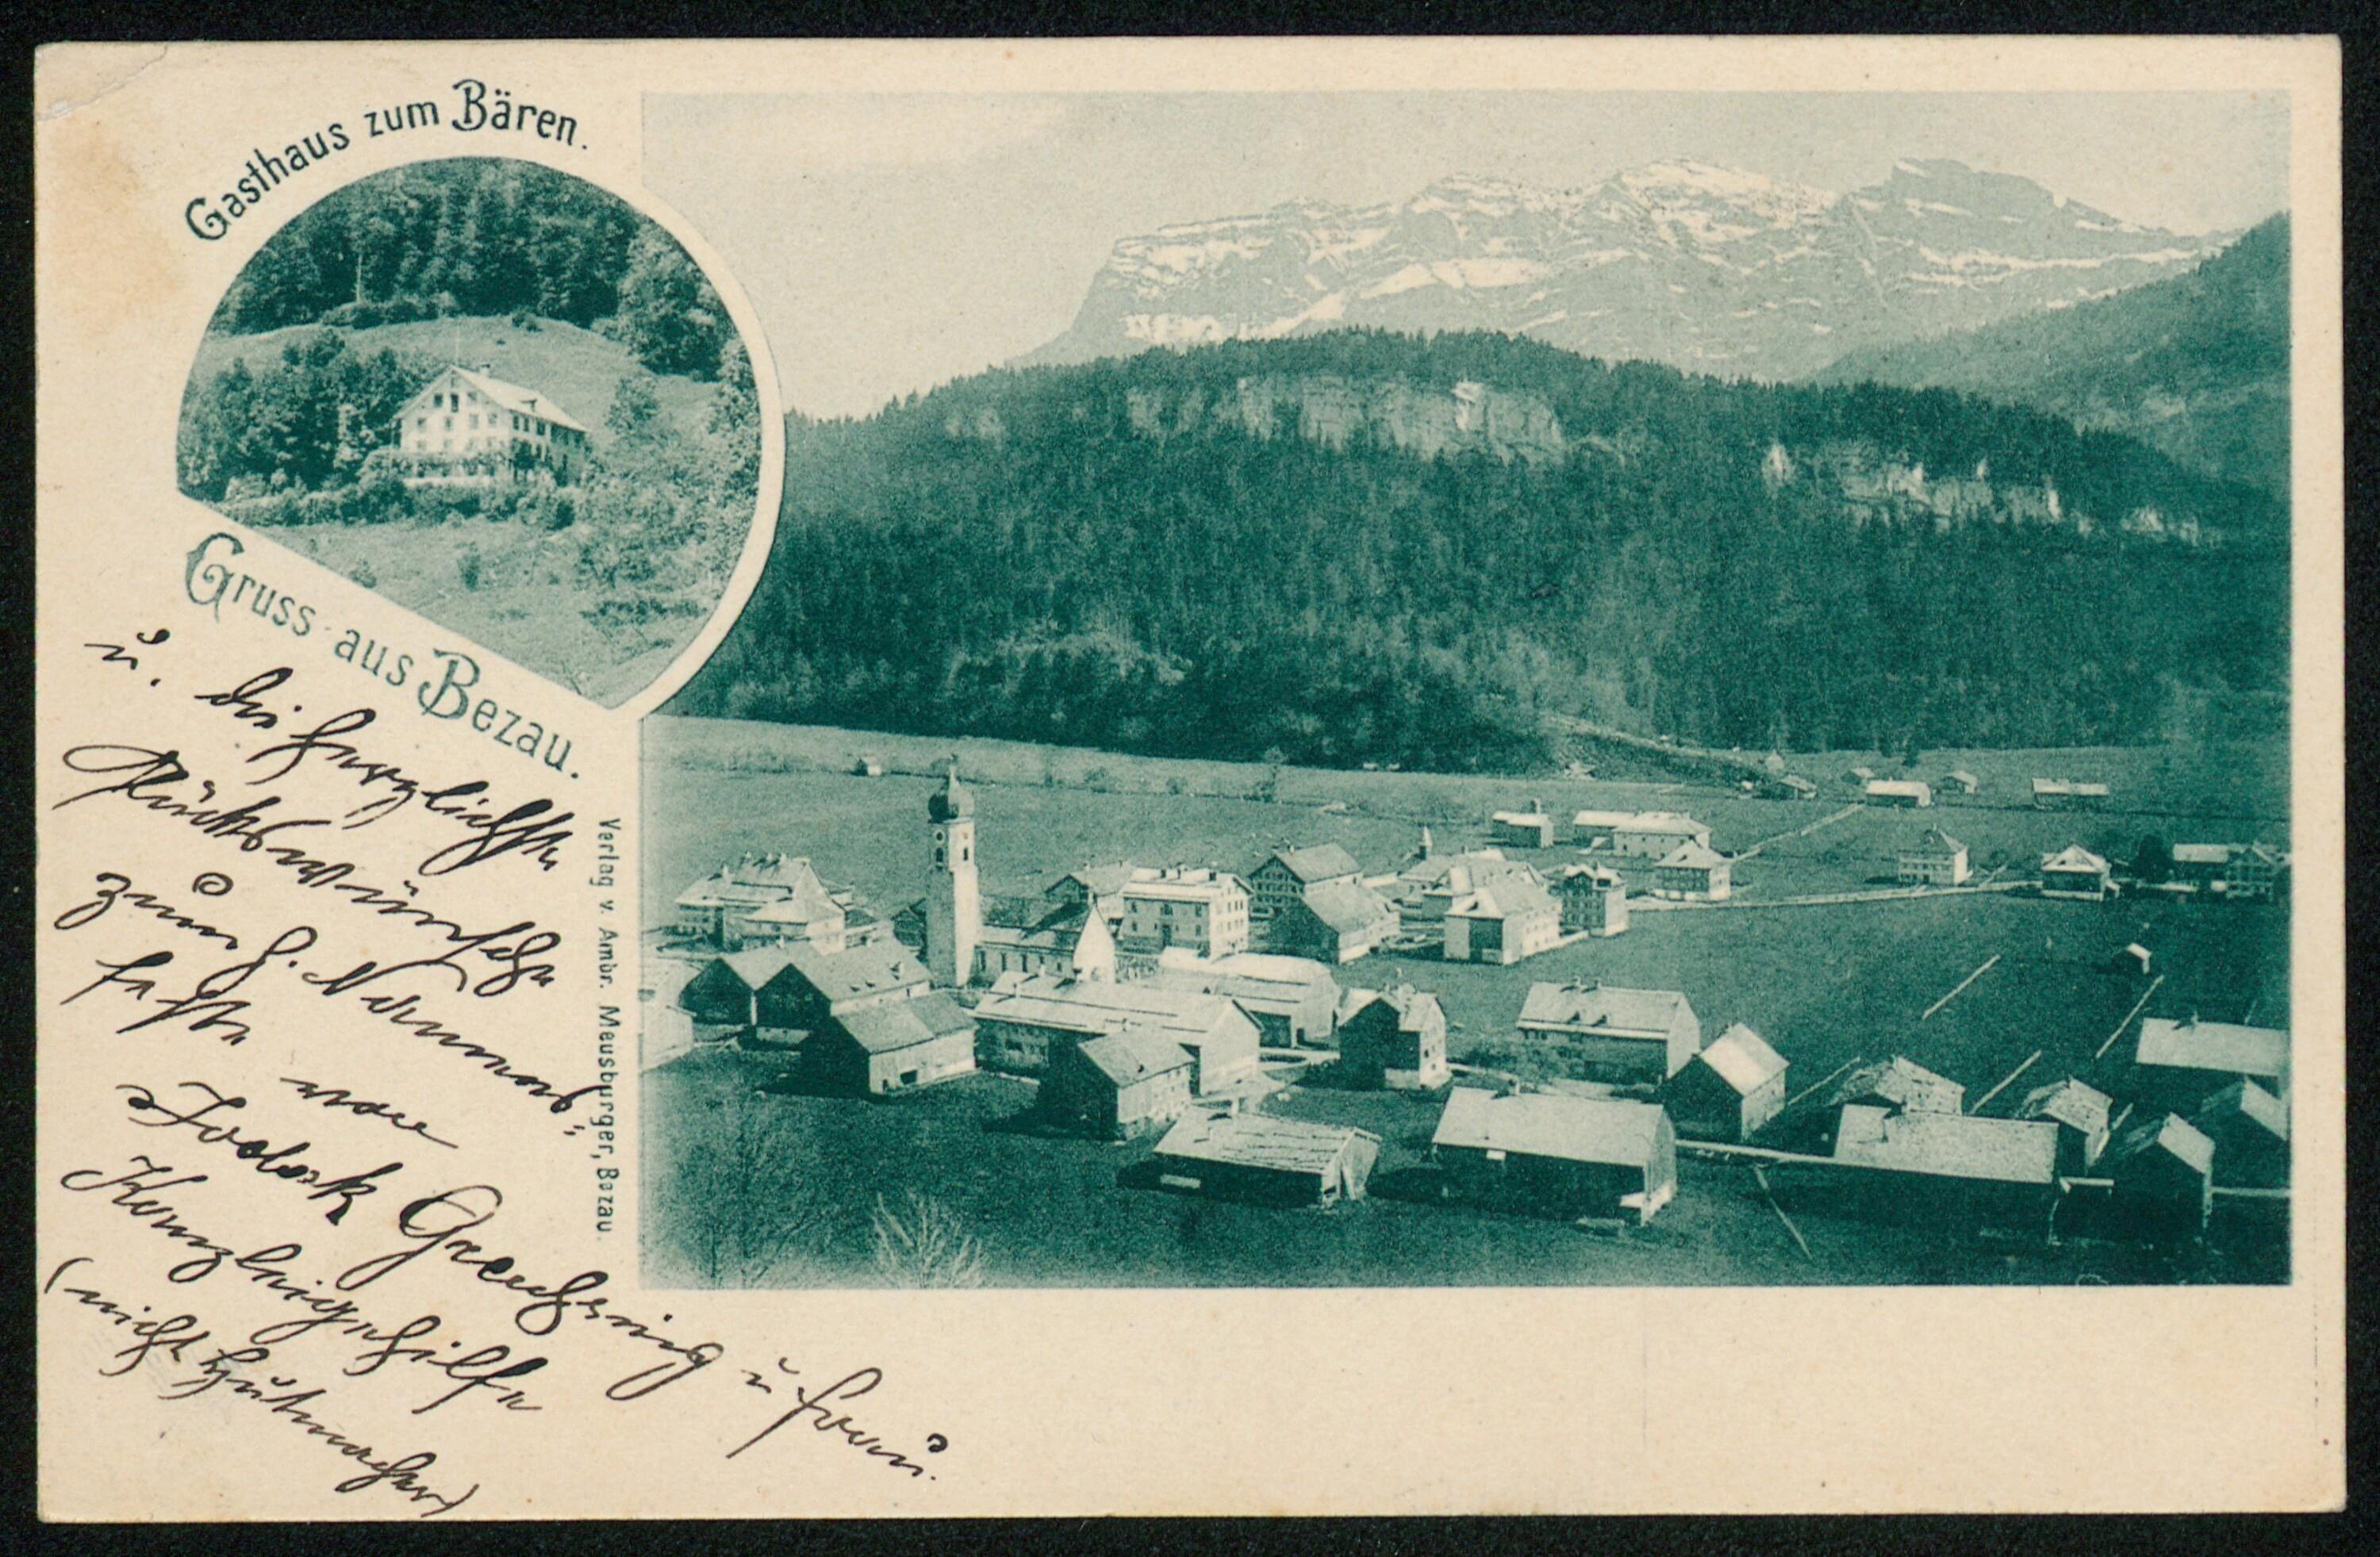 Gasthaus zum Bären.
Gruss aus Bezau.
Verlag v. Ambr. Meusburger, Bezau.
u. die herzlichste
Glückswünsche
zum h. Namens-
feste von
Jodok Greußing u Frau.
Kanzleigehilfe
(nicht Hutmacher)